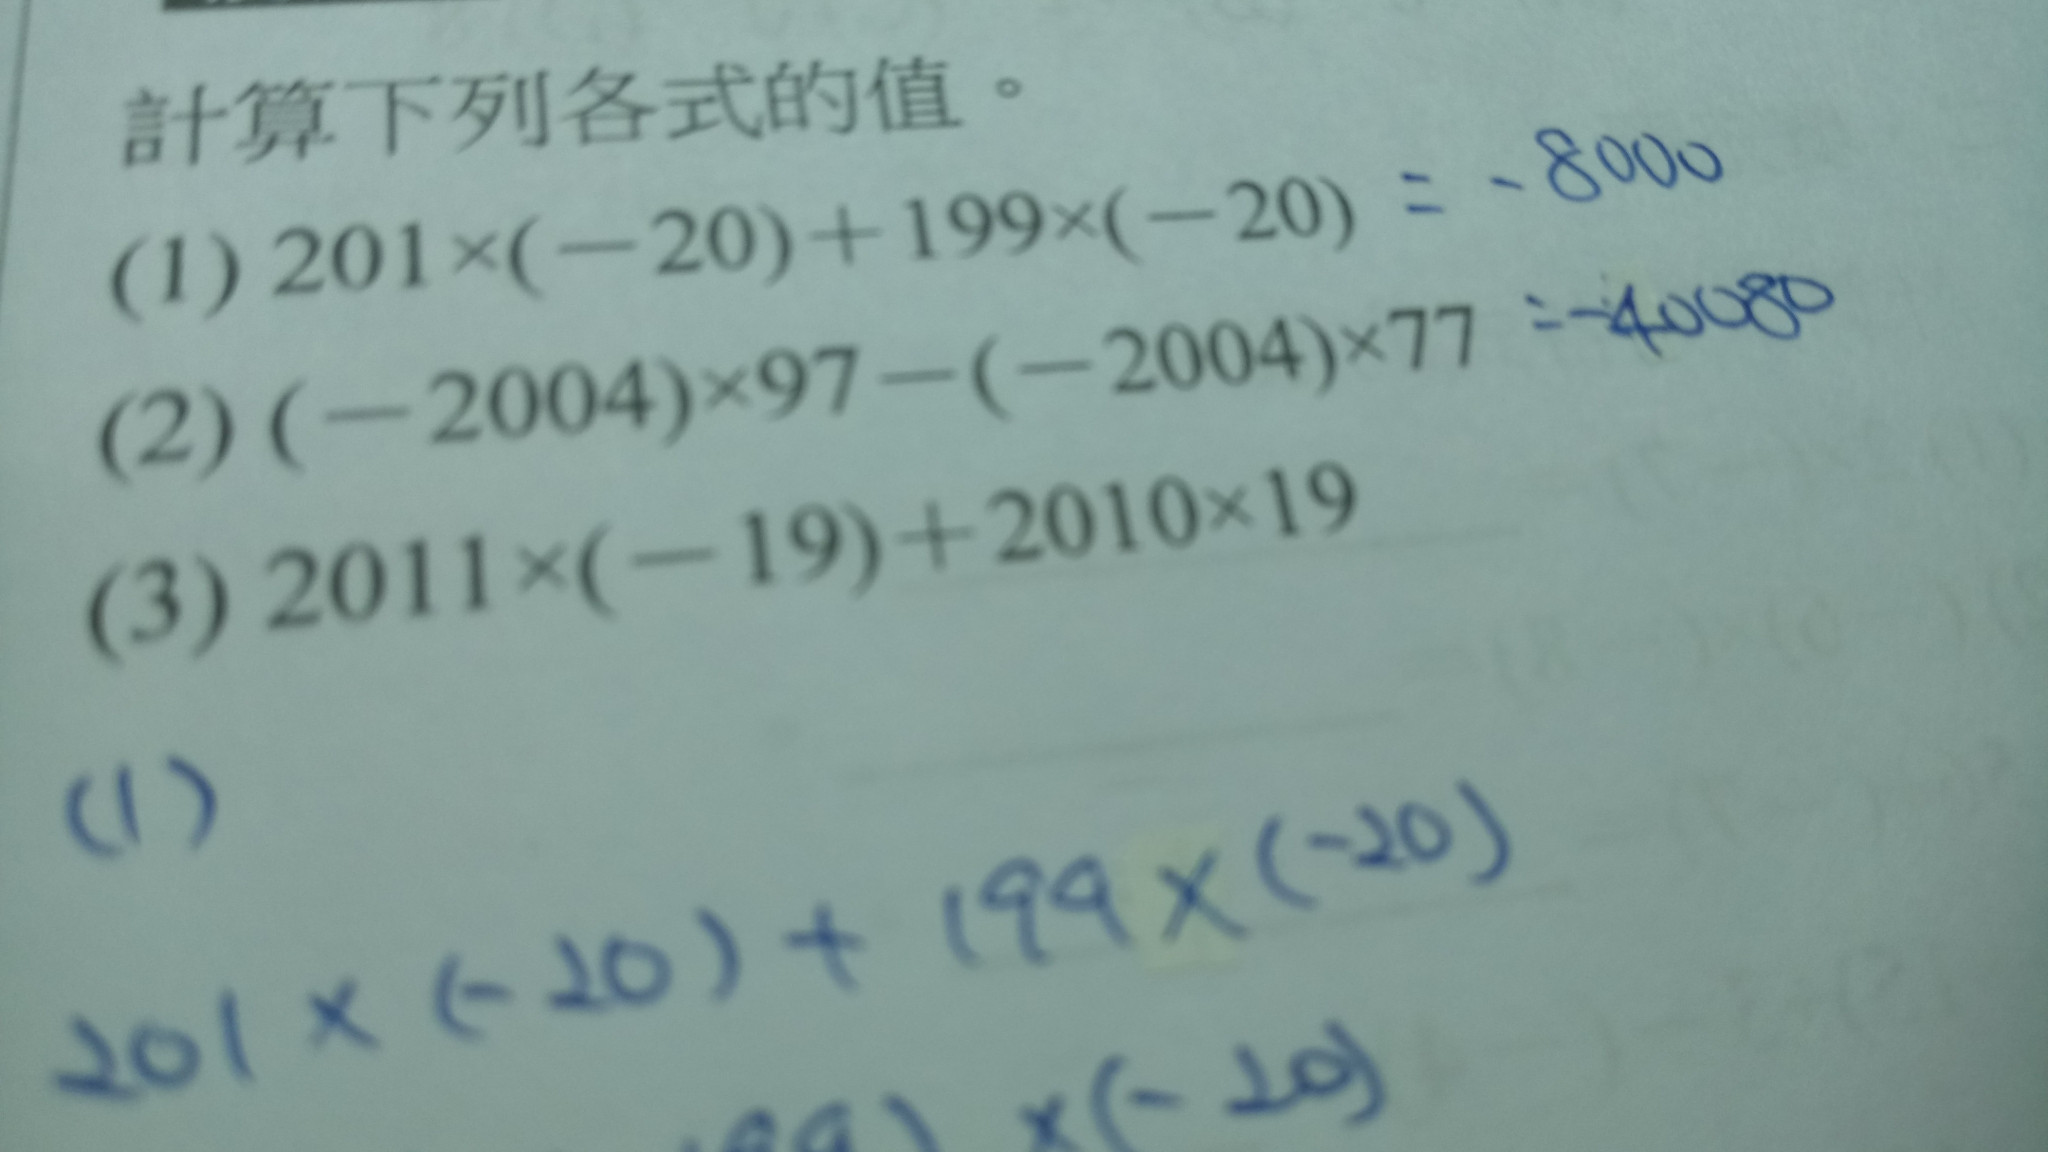 計算下列各式的值。
(1) 201×(-20)+199×(-20) = -8000
(2) (-2004)×97-(-2004)×77 =-40080
(3) 2011×(-19)+2010×19
(1)
201 × (-20) + 199 × (-20)
199) ×(-20)